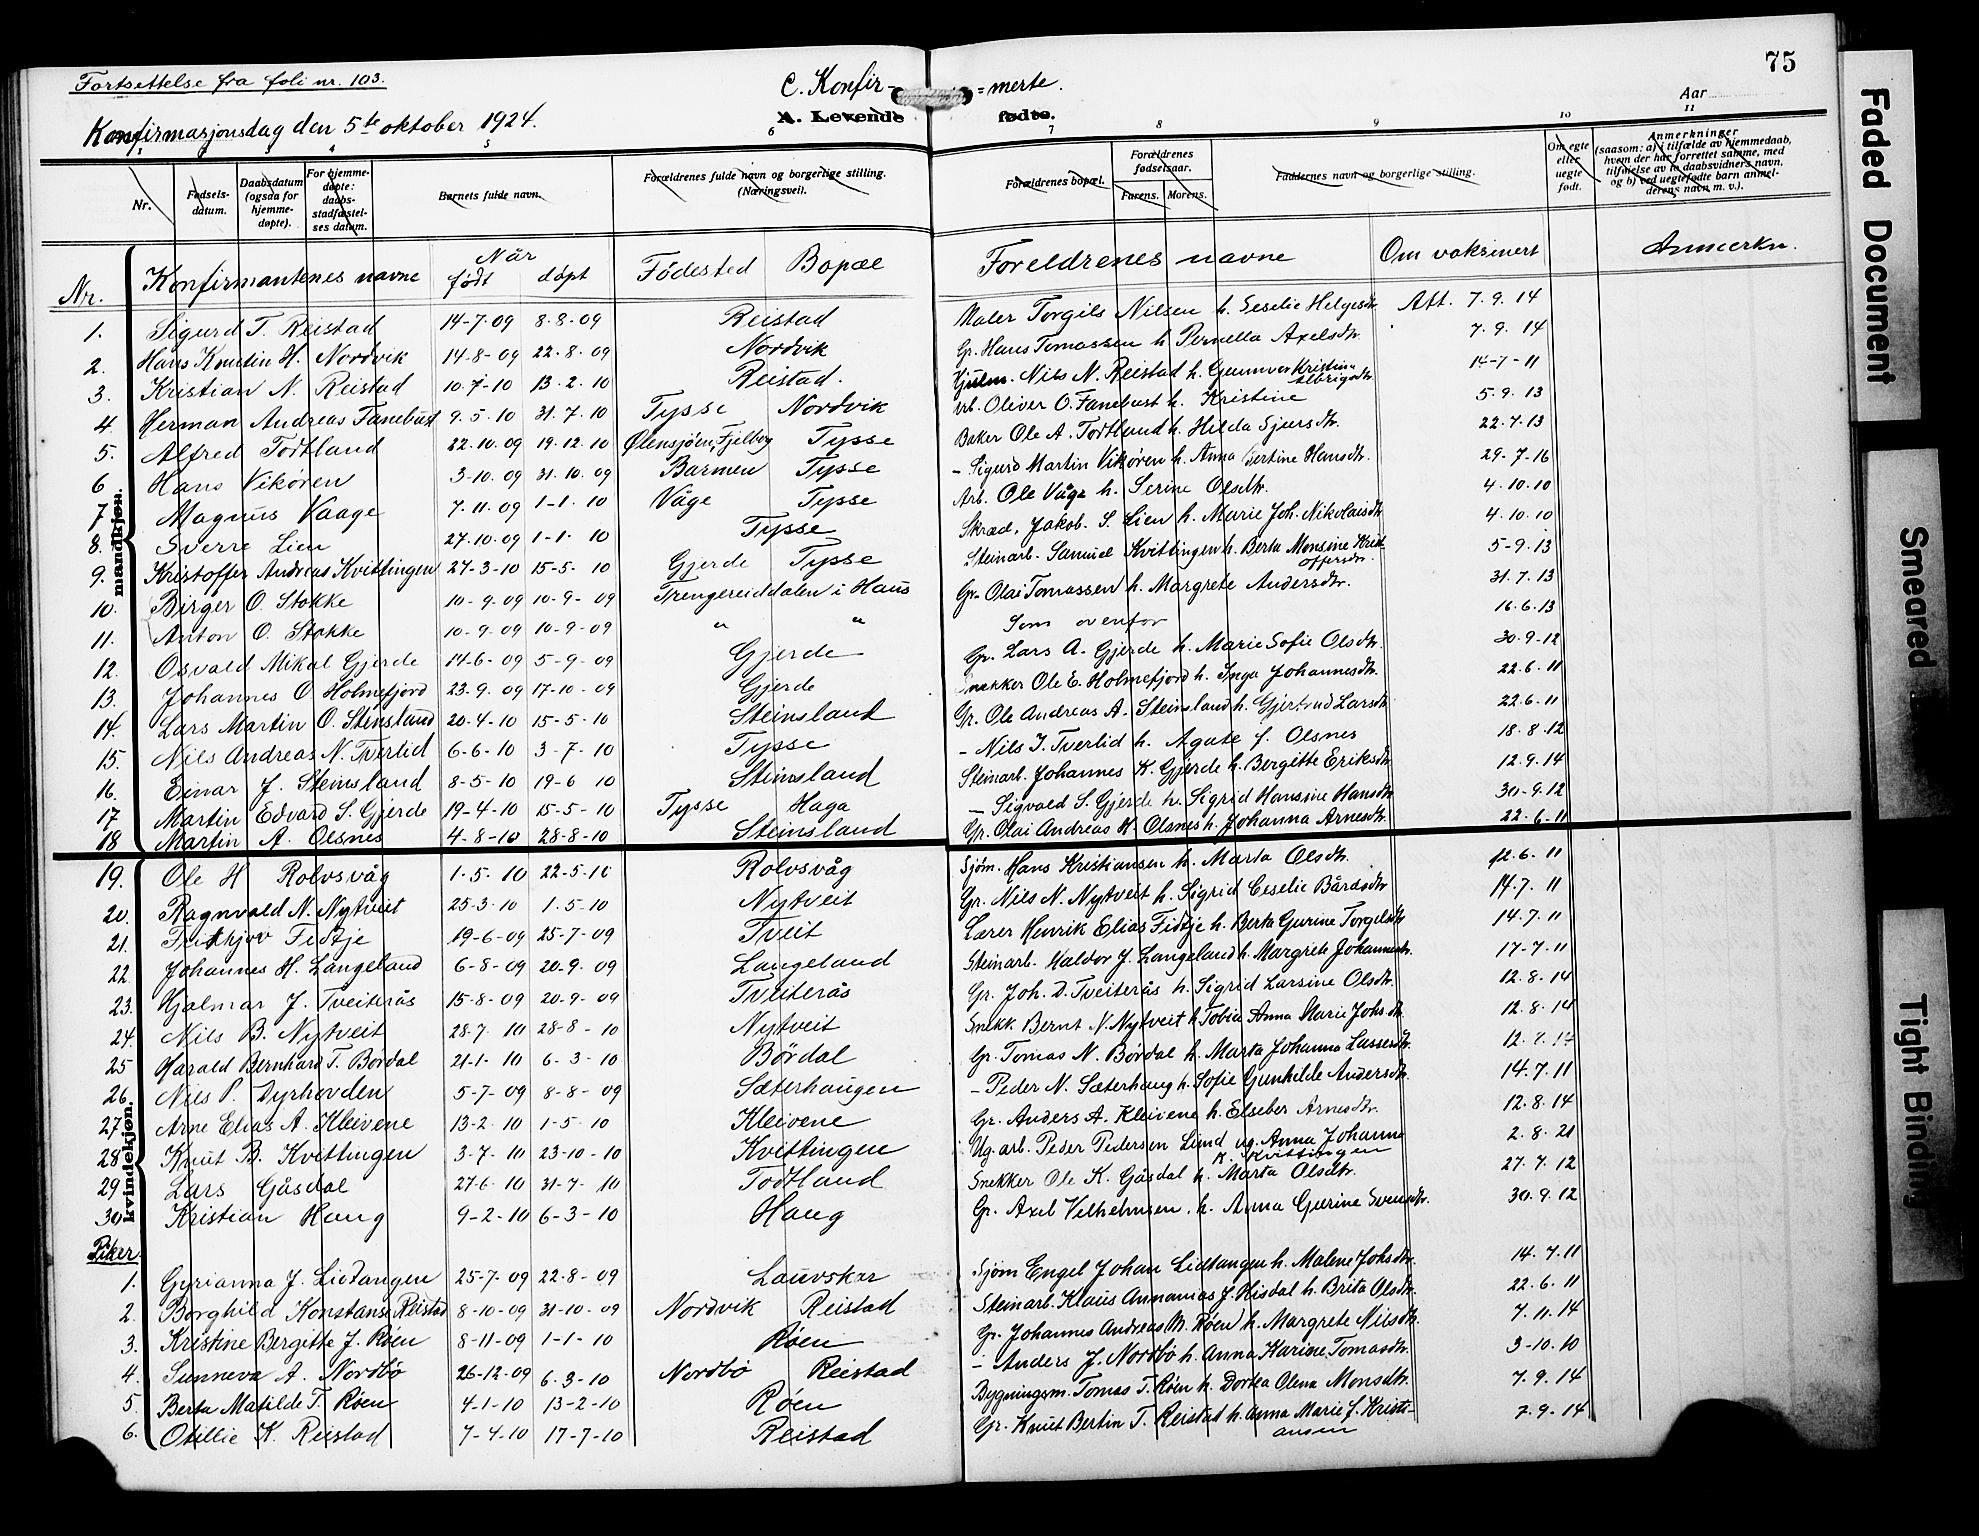 75
Fortsettelse fra foli nr. 103.
C. Konfir- =merte.
Konfirmasjonsdag den 5te oktober 1924.
A. Levende fødte.
Aar
1 3 4 5 6 7 8 9 10 11
Nr. Fødsels-datum. Daabsdatum (ogsaa for hjemme-døpte). For hjemme-døpte: daabs-stadfæstel-ses datum. Barnets fulde navn. Forældrenes fulde navn og borgerlige stilling. (Næringsvei). Forældrenes bopæl. Forældrenes fødselsaar. Farens. Morens. Faddernes navn og borgerlige stilling. Om egte eller uegte født. Anmerkninger (saasom: a) i tilfælde av hjemmedaab, hvem der har forrettet samme, med tilføielse av to daabsvidners navn, og b) ved uegtefødte barn anmel-derens navn m. v.).
Nr. Konfirmantenes navne Når født døpt Fødested Bopæl Foreldrenes navne Om vaksinert Anmerkn.
mandkjøn.
1. Sigurd T. Reistad 14-7-09 8-8-09 Reistad Maler Torgils Nilsen h. Seselie Helgesdtr. Att. 7.9.14
2. Hans Knutin H. Nordvik 14-8-09 22.8.09 Nordvik Gr. Hans Tomassen h. Pernella Axelsdtr. 7.9.14
3. Kristian N. Reistad 13.2.10 Reistad. Hjulm. Nils N. Reistad h. Gunnver Kristine 14-7-11
4. Herman Andreas Fanebust 9.5.10 31.7.10 Tysse Nordvik Arb. Oliver O. Fanebust h. Kristine 5.9.13
5. Alfred Todtland 22.10.09 19.12.10 Ølensjøen, Fjelberg Tysse Baker Ole A. Todtland h. Hilda Sjursdtr. 22.7.13
6 Hans Vikøren 3-10.09 31.10.09 Barmen Tysse - Sigurd Martin Vikøren h. Anna Bertine Hansdtr. 29-7-16
7 Magnus Vaage 7.11.09 1-1.10 Våge Tysse Arb. Ole Våge h. Serine Olsdtr. 4.10.10
8. Sverre Lien 27.10.09 1-1.10 Tysse Skræd. Jakob S. Lien h. Marie Joh. Nikolaisdtr. 4.10.10
9. Kristoffer Andreas Kvittingen 27-3-10 15-5.10 Gjerde Tysse Steinarb. Samuel Kvittingen h. Berta Monsine Krist offersdtr. 5-9.13
10. Birger O. Stokke 10-9.09 10-9-09 Trengereiddalen i Haus Gr. Olai Tomassen h. Margrete Andersdtr. 31.7.13
11. Anton O. Stokke 10-9-09 10-9-09 " " Som ovenfor 16.6.13
12. Osvald Mikal Gjerde 14-6-09 5-9-09 Gjerde Gr. Lars A. Gjerde h. Marie Sofie Olsdtr. 30-9-12
13. Johannes O Holmefjord 23.9.09 17-10-09 Gjerde Snekker Ole E. Holmefjord h. Inga Johannesdtr. 22.6.11
14. Lars Martin O. Steinsland 20-4-10 15-5-10 Steinsland Gr. Ole Andreas A. Steinsland h. Gjertrud Larsdtr. 22.6.11
15. Nils Andreas N. Tverlid 6-6-10 3-7-10 Tysse - Nils J. Tverlid h. Agate f. Olsnes 18.8.12
16. Einar J. Steinsland 8-5-10 19-6 10 Steinsland Steinarb. Johannes K. Gjerde h. Bergitte Eriksdtr. 12.9.14
17 Martin Edvard S. Gjerde 19-4-10 15-5-10 Tysse Haga - Sigvald S. Gjerde h. Sigrid Hansine Hansdtr. 30-9.12
18 Martin A. Olsnes 4-8-10 28-8-10 Steinsland Gr. Olai Andreas H. Olsnes h. Johanna Arnesdtr. 22-6-11
kvindekjøn.
19. Ole H Rolvsvåg 1-5.10 22-5-10 Rolvsvåg Sjøm. Hans Kristiansen h. Marta Olsdtr. 12.6.11
20. Ragnvald N. Nytveit 25-3.10 1.5-10 Nytveit Gr. Nils N. Nytveit h. Sigrid Ceselie Bårdsdtr. 14.7.11
21. Fritkjov Fidtje 19-6-09 25-7-09 Tveit Lærer Henrik Elias Fidtje h. Berta Gurine Torgelsdtr. 14.7.11
22. Johannes H. Langeland 6-8-09 20-9.09 Langeland Steinarb. Haldor J. Langeland h. Margrete Johannesdtr. 17-7-11
23. Hjalmar J. Tveiterås 15-8-09 20-9-09 Tveiterås Gr. Joh. D. Tveiterås h. Sigrid Larsine Olsdtr. 12.8.14
24. Nils B. Nytveit 28.7.10 28-8-10 Nytveit Snekk. Bernt N. Nytveit h. Tobia Anna Marie Johsdtr. 12.8.14
25 Harald Bernhard T. Børdal 21-1-10 6-3-10 Børdal Gr. Tomas N. Børdal h. Marta Johanna Lassesdtr.
26. Nils P. Dyrhovden 5-7-09 8-8-09 Sæterhaugen - Peder N. Sæterhaug h. Sofie Gunhilde Andersdtr. 14.7.11
27 Arne Elias A. Kleivene 13-2.10 1-5.10 Kleivene Gr. Anders A. Kleivene h. Elseber Arnesdtr. 12.8.14
28 Knut B. Kvittingen 3-7-10 23-10-10 Kvittingen Ug. arb. Peder Pedersen Lund ug. Anna Johanna K. Kvittingen 2.8.21
29 Lars Gåsdal 27.6.10 31-7-10 Todtland Snekker Ole K. Gåsdal h. Marta Olsdtr. 27.7.12
30 Kristian Haug 9-2-10 6-3-10 Haug Gr. Axel Vilhelmsen h. Anna Gurine Svensdtr. 30.9.12
Piker
1. Gyrianna J. Lidtangen 25-7.09 22-8-09 Lauvskar Sjøm Engel Johan Lidtangen h. Malene Johsdtr. 14.7.11
2. Borghild Konstanse Reistad 8-10-09 31-10-09 Nordvik Reistad Steinarb. Klaus Annanias J. Hisdal h. Brita Olsdtr. 22.6.11
3. Kristine Bergitte J. Røen 8-11-09 1-1-10 Røen Gr. Johannes Andreas M. Røen h. Margrete Nilsdtr. 7.11.14
4. Sunneva A. Nordbø 26-12-09 6.3-10 Nordbø Reistad - Anders J. Nordbø h. Anna Karine Tomasdtr. 3-10.10
5. Berta Matilde T. Røen 4-1-10 13-2-10 Røen Bygningsm. Tomas T. Røen h. Dortea Olena Monsdtr. 7.9.14
6. Otillie K. Reistad 7-4.10 17-7-10 Reistad Gr. Knut Bertin T. Reistad h. Anna Marie f. Kristi-ansen 7-9-14
Faded Document
Smeared
Tight Binding